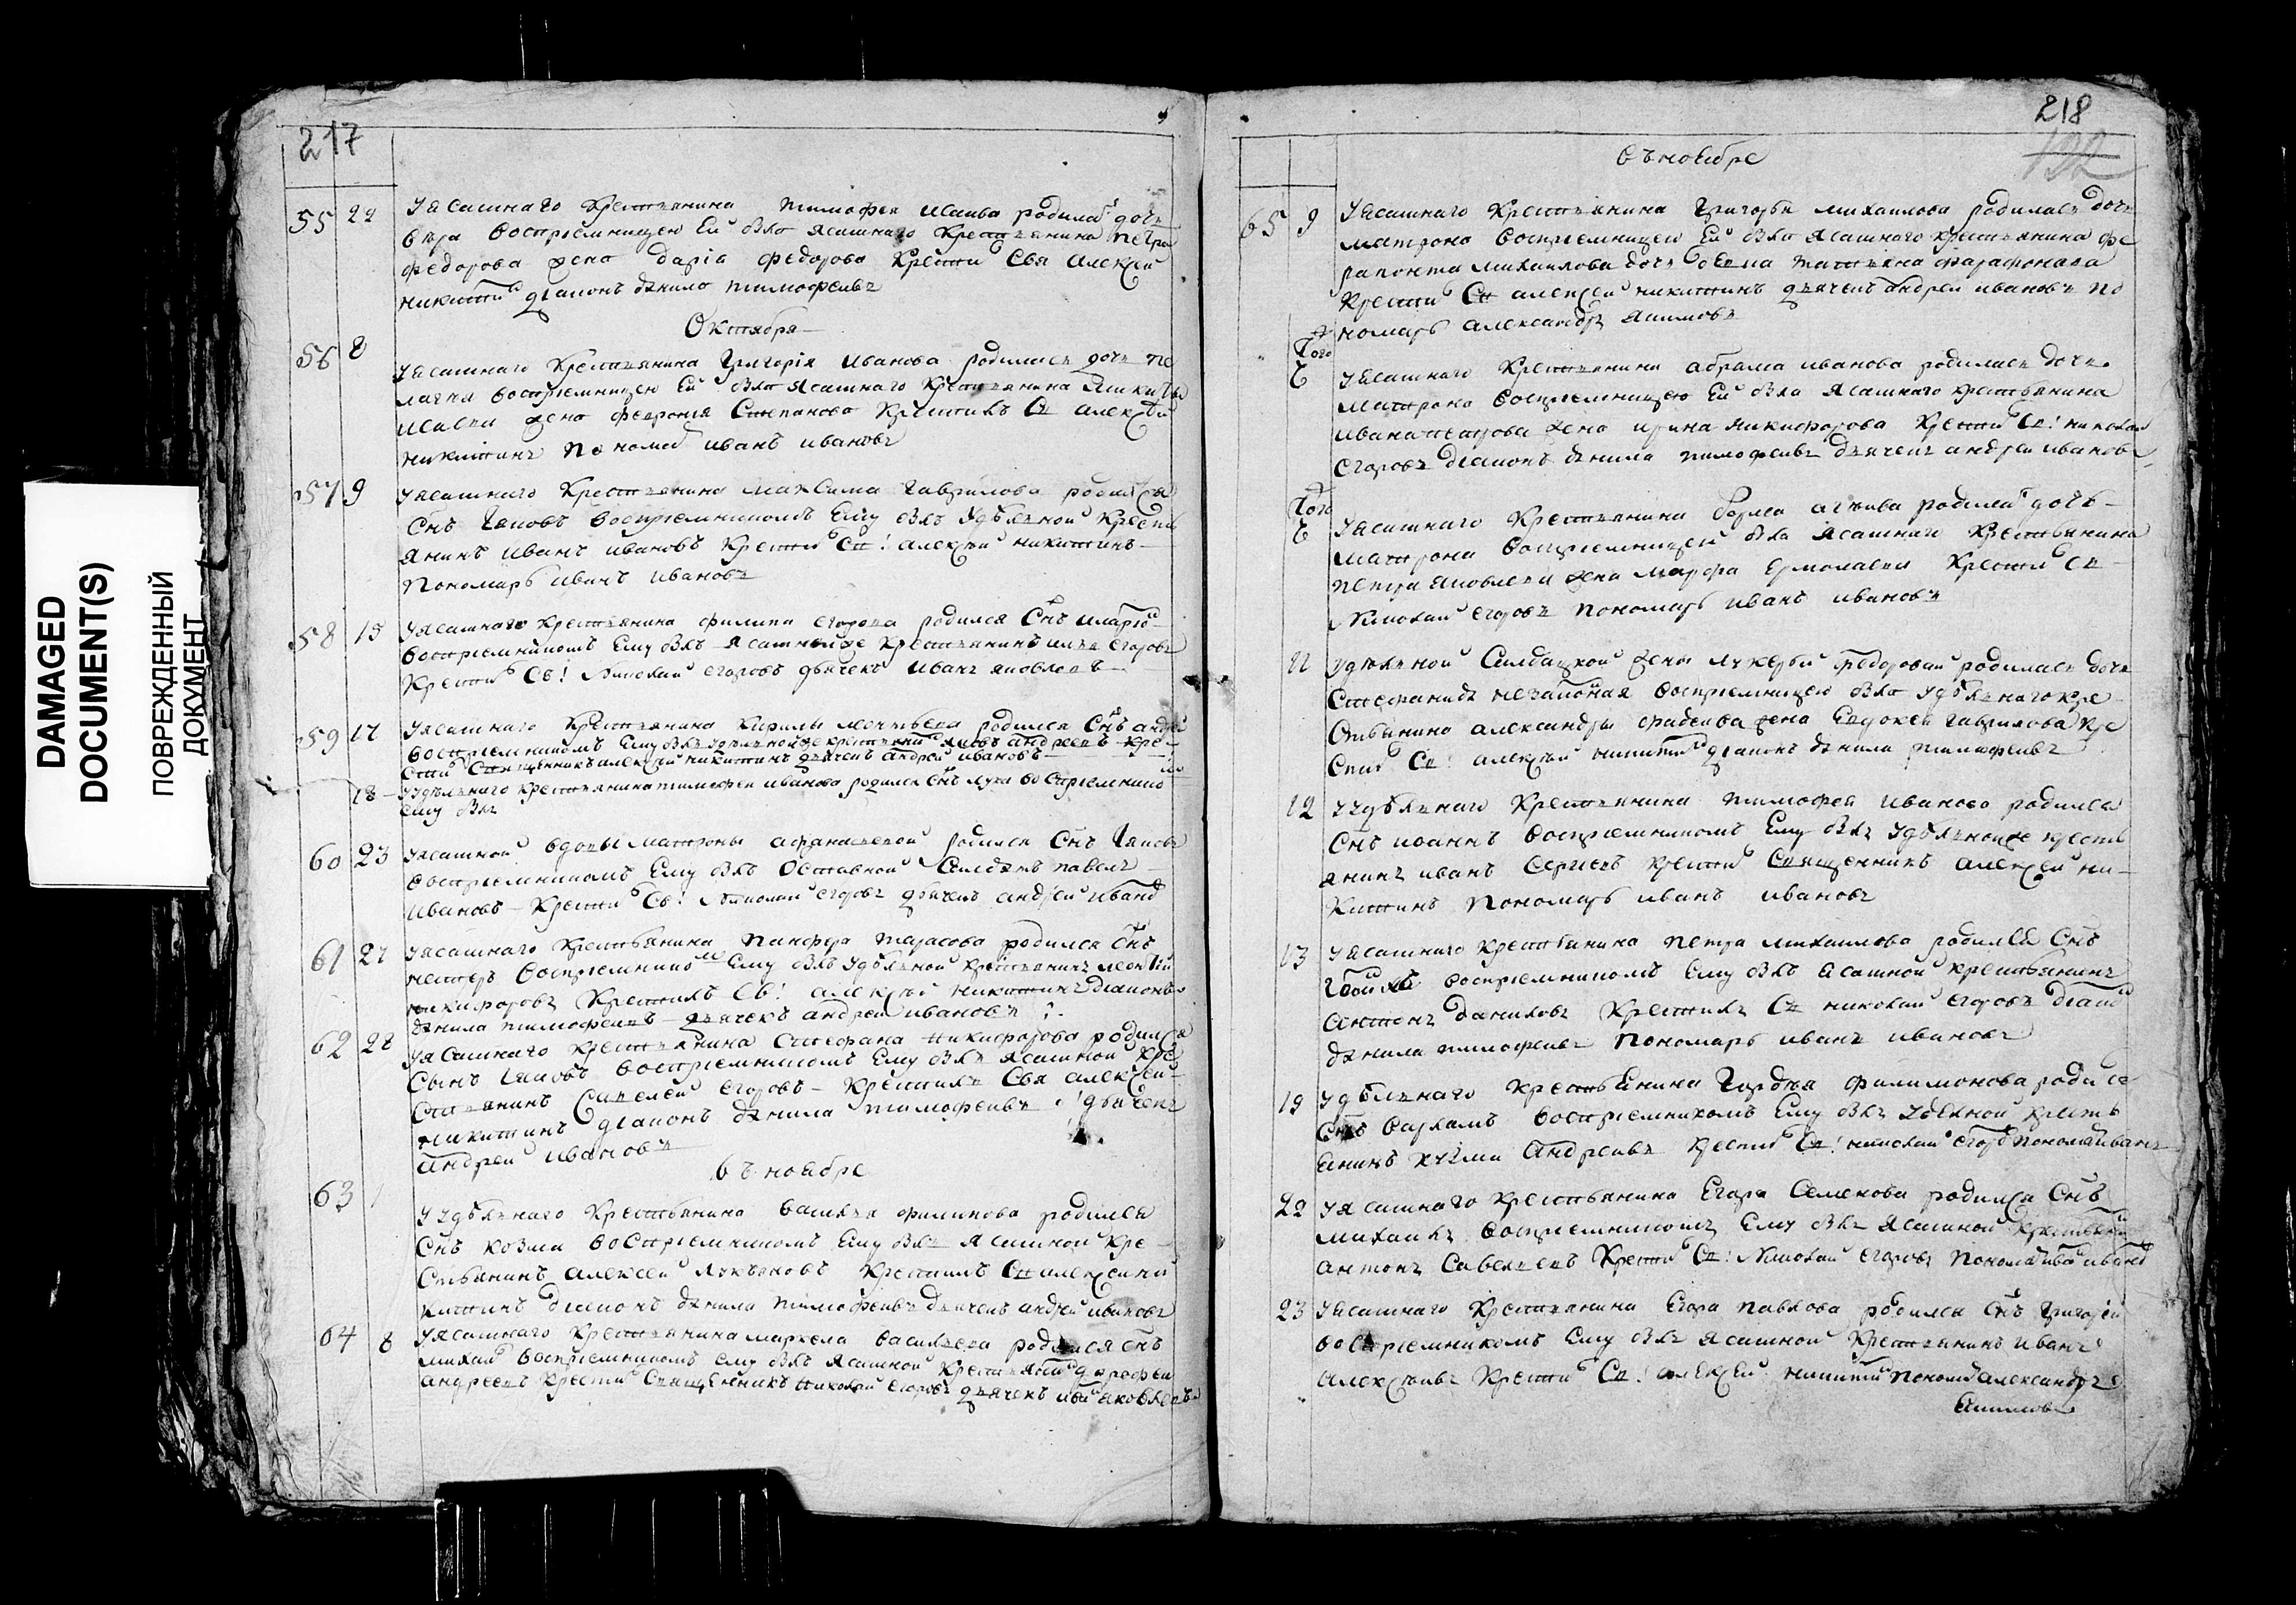 DAMAGED
DOCUMENT(S)
ПОВРЕЖДЕННЫЙ
ДОКУМЕНТ
217
55 22 У ясашнаго крестьянина тимофея исаива родилас дочь
вера восприемницею ей была ясашнаго крестьянина петра
федорова жена дарiа федорова крести свя алексей
никити дiаконъ данило тимофеивъ
Октября
56 8 У ясашнаго крестьянина григорiя иванова родилась дочь пе
лагея восприемницею ей была ясашнаго крестьянина
жена феврония степанова крестилъ св алексей
никитинъ пономар иванъ ивановъ
57 9 У ясашнаго крестьянина максима гаврилова родился
снъ iяковъ восприемникомъ ему былъ удѣльной кресть
янинъ иванъ ивановъ крести св алексей никитинъ
пономарь иванъ ивановъ
58 15 У ясашнаго крестьянина филипа егорова родился снъ
восприемникомъ ему былъ ясашной же крестьянинъ илья егоровъ
крести св николай егоровъ дьячекъ иванъ яковлевъ
59 17 У ясашнаго крестьянина кирилы родился снъ андрей
восприемникомъ ему былъ удельной же крестьянин яковъ андреевъ кре
сти священникъ алексей никитинъ дьячекъ андрей ивановъ
18 У удѣльнаго крестьянина тимофея иванова родился снъ лука восприемникомъ
ему былъ
60 23 У ясашной вдовы матроны афанасьевой родился снъ iяковъ
восприемникомъ ему былъ отставной салдатъ павелъ
ивановъ крести св николай егоровъ дьячекъ андрей иванов
61 27 У ясашнаго крестьянина панфера тарасова родился снъ
нестеръ восприемникомъ ему былъ удѣльной крестьянинъ леонтей
никифоровъ крестилъ св алексѣй никитинъ дiаконъ
данила тимофеивъ дьячекъ андрей ивановъ
62 28 У ясашнаго крестьянина стефана никифорова родился
сынъ iяковъ восприемникомъ ему былъ ясашной кре
стьянинъ савелей егоровъ крестилъ свя алексей
никитинъ дiаконъ данила тимофеивъ дьячекъ
андрей ивановъ
въ ноебре
63 1 У удѣльнаго крестьянина василья филипова родился
снъ козма восприемникомъ ему былъ ясашной кре
стьянинъ алексей лукьяновъ крестилъ св алексей ни
китинъ дiаконъ данила тимофеивъ дьячекъ андрей ивановъ
64 8 У ясашнаго крестьянина маркела васильева родился снъ
михаил восприемникомъ ему былъ ясашной крестьянин дорофей
андреевъ крести священникъ николай егоров дьячекъ иван яковлевъ
218
132
въ ноебре
65 9 У ясашнаго крестьянина григорья михаилова родилась дочь
матрона восприемницею ей была ясашнаго крестьянина фе
рапонта михаилова дочь татьяна
крести св алексей никитинъ дьячекъ андрей ивановъ по
номарь александръ якимовъ
Того ж
У ясашнаго крестьянина абрама иванова родилась дочь
матрона восприемницею ей была ясашнаго крестьянина
ивана петрова жена ирина никифорова крести св николай
егоровъ дiаконъ данила тимофеивъ дьячекъ андрей ивановъ
Того ж
У ясашнаго крестьянина родилас дочь
матрона восприемницей была ясашнаго крестьянина
петра яковлева жена марфа ермолаева крести св
николай егоровъ пономарь иванъ ивановъ
11 Удѣльной салдацкой жены лукерьи федоровой родилась дочь
стефанида незаконая восприемницею была удѣльнаго кре
стьянина александры фадеива жена евдокея гаврилова кре
стил св алексѣй никитин дiаконъ данила тимофеивъ
12 У удѣльнаго крестьянина тимофея иванова родился
снъ иоаннъ восприемникомъ ему былъ удѣльной же кресть
янинъ иванъ сергиевъ крести священникъ алексей ни
китинъ пономарь иванъ ивановъ
13 У ясашнаго крестьянина петра михаилова родился снъ
восприемникомъ ему былъ ясашной крестьянинъ
антонъ даниловъ крестилъ св николай егоровъ дiакон
данила тимофеивъ пономарь иванъ ивановъ
19 Удѣльнаго крестьянина гордѣя филимонова родился
снъ варламъ восприемникомъ ему былъ удѣлной кресть
янинъ кузма андреивъ крестил св николай егоров пономар иванъ
22 У ясашнаго крестьянина егора семенова родился снъ
михаилъ восприемникомъ ему былъ ясашной крестьянин
антонъ савельевъ крести св николай егоровъ понома иван иванов
23 У ясашнаго крестьянина егора павлова родился снъ григорей
восприемникомъ ему былъ ясашной крестьянинъ иванъ
алексѣивъ крести св алексей никитин пономар александръ
якимовъ